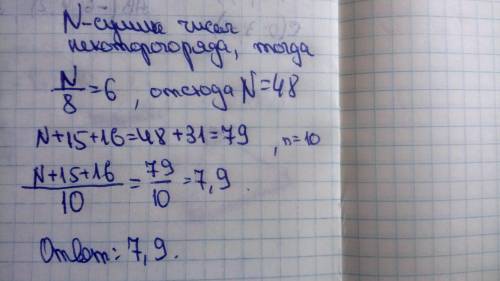 N-сумма чисел
некоторого ряда, тогда
N/8=6, отсюда N=48
N+15+16=48+31=79, n=10
(N+15+16)/10=79/10=7,9.
Ответ: 7,9.